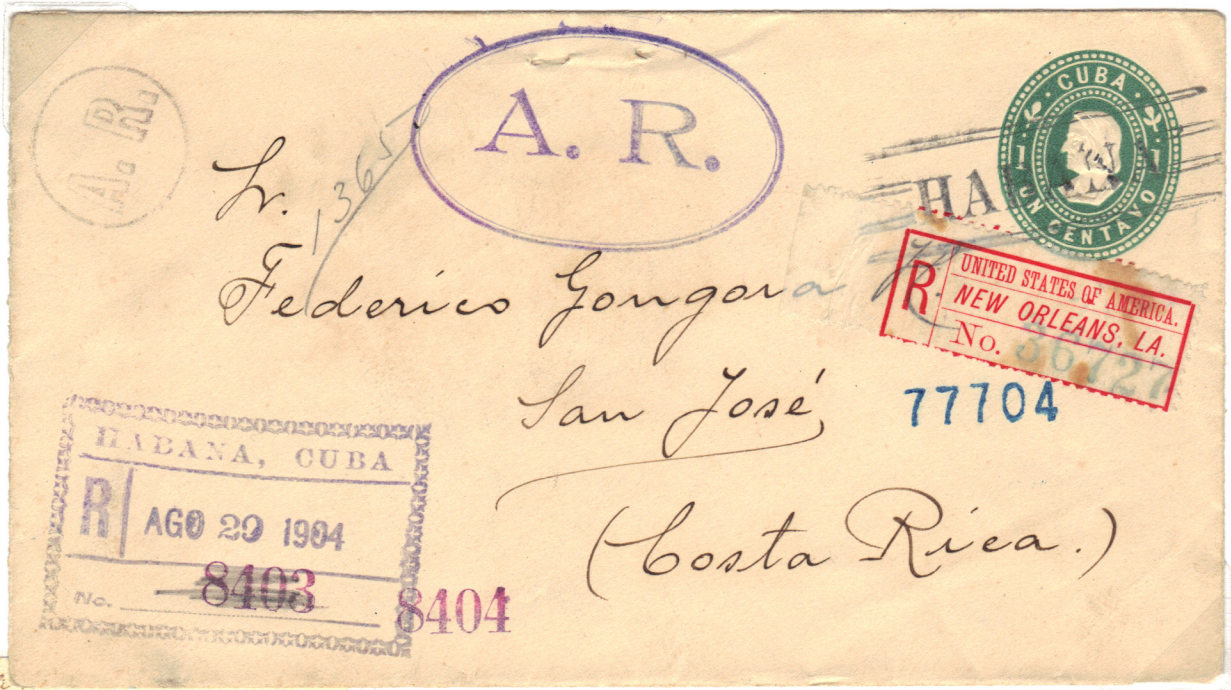 A. R.
A. R.
CUBA
1 1
UN CENTAVO
Sr.
Federico Gongora
San José
(Costa Rica.)
R
UNITED STATES OF AMERICA.
NEW ORLEANS, LA.
No. 36727
77704
HABANA, CUBA
R
AGO 29 1904
No. 8403
8404